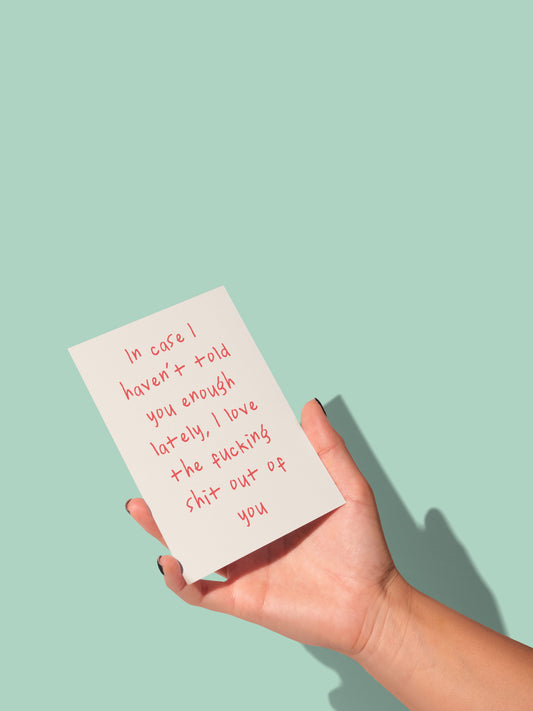 In case I
haven't told
you enough
lately, I love
the fucking
shit out of
you